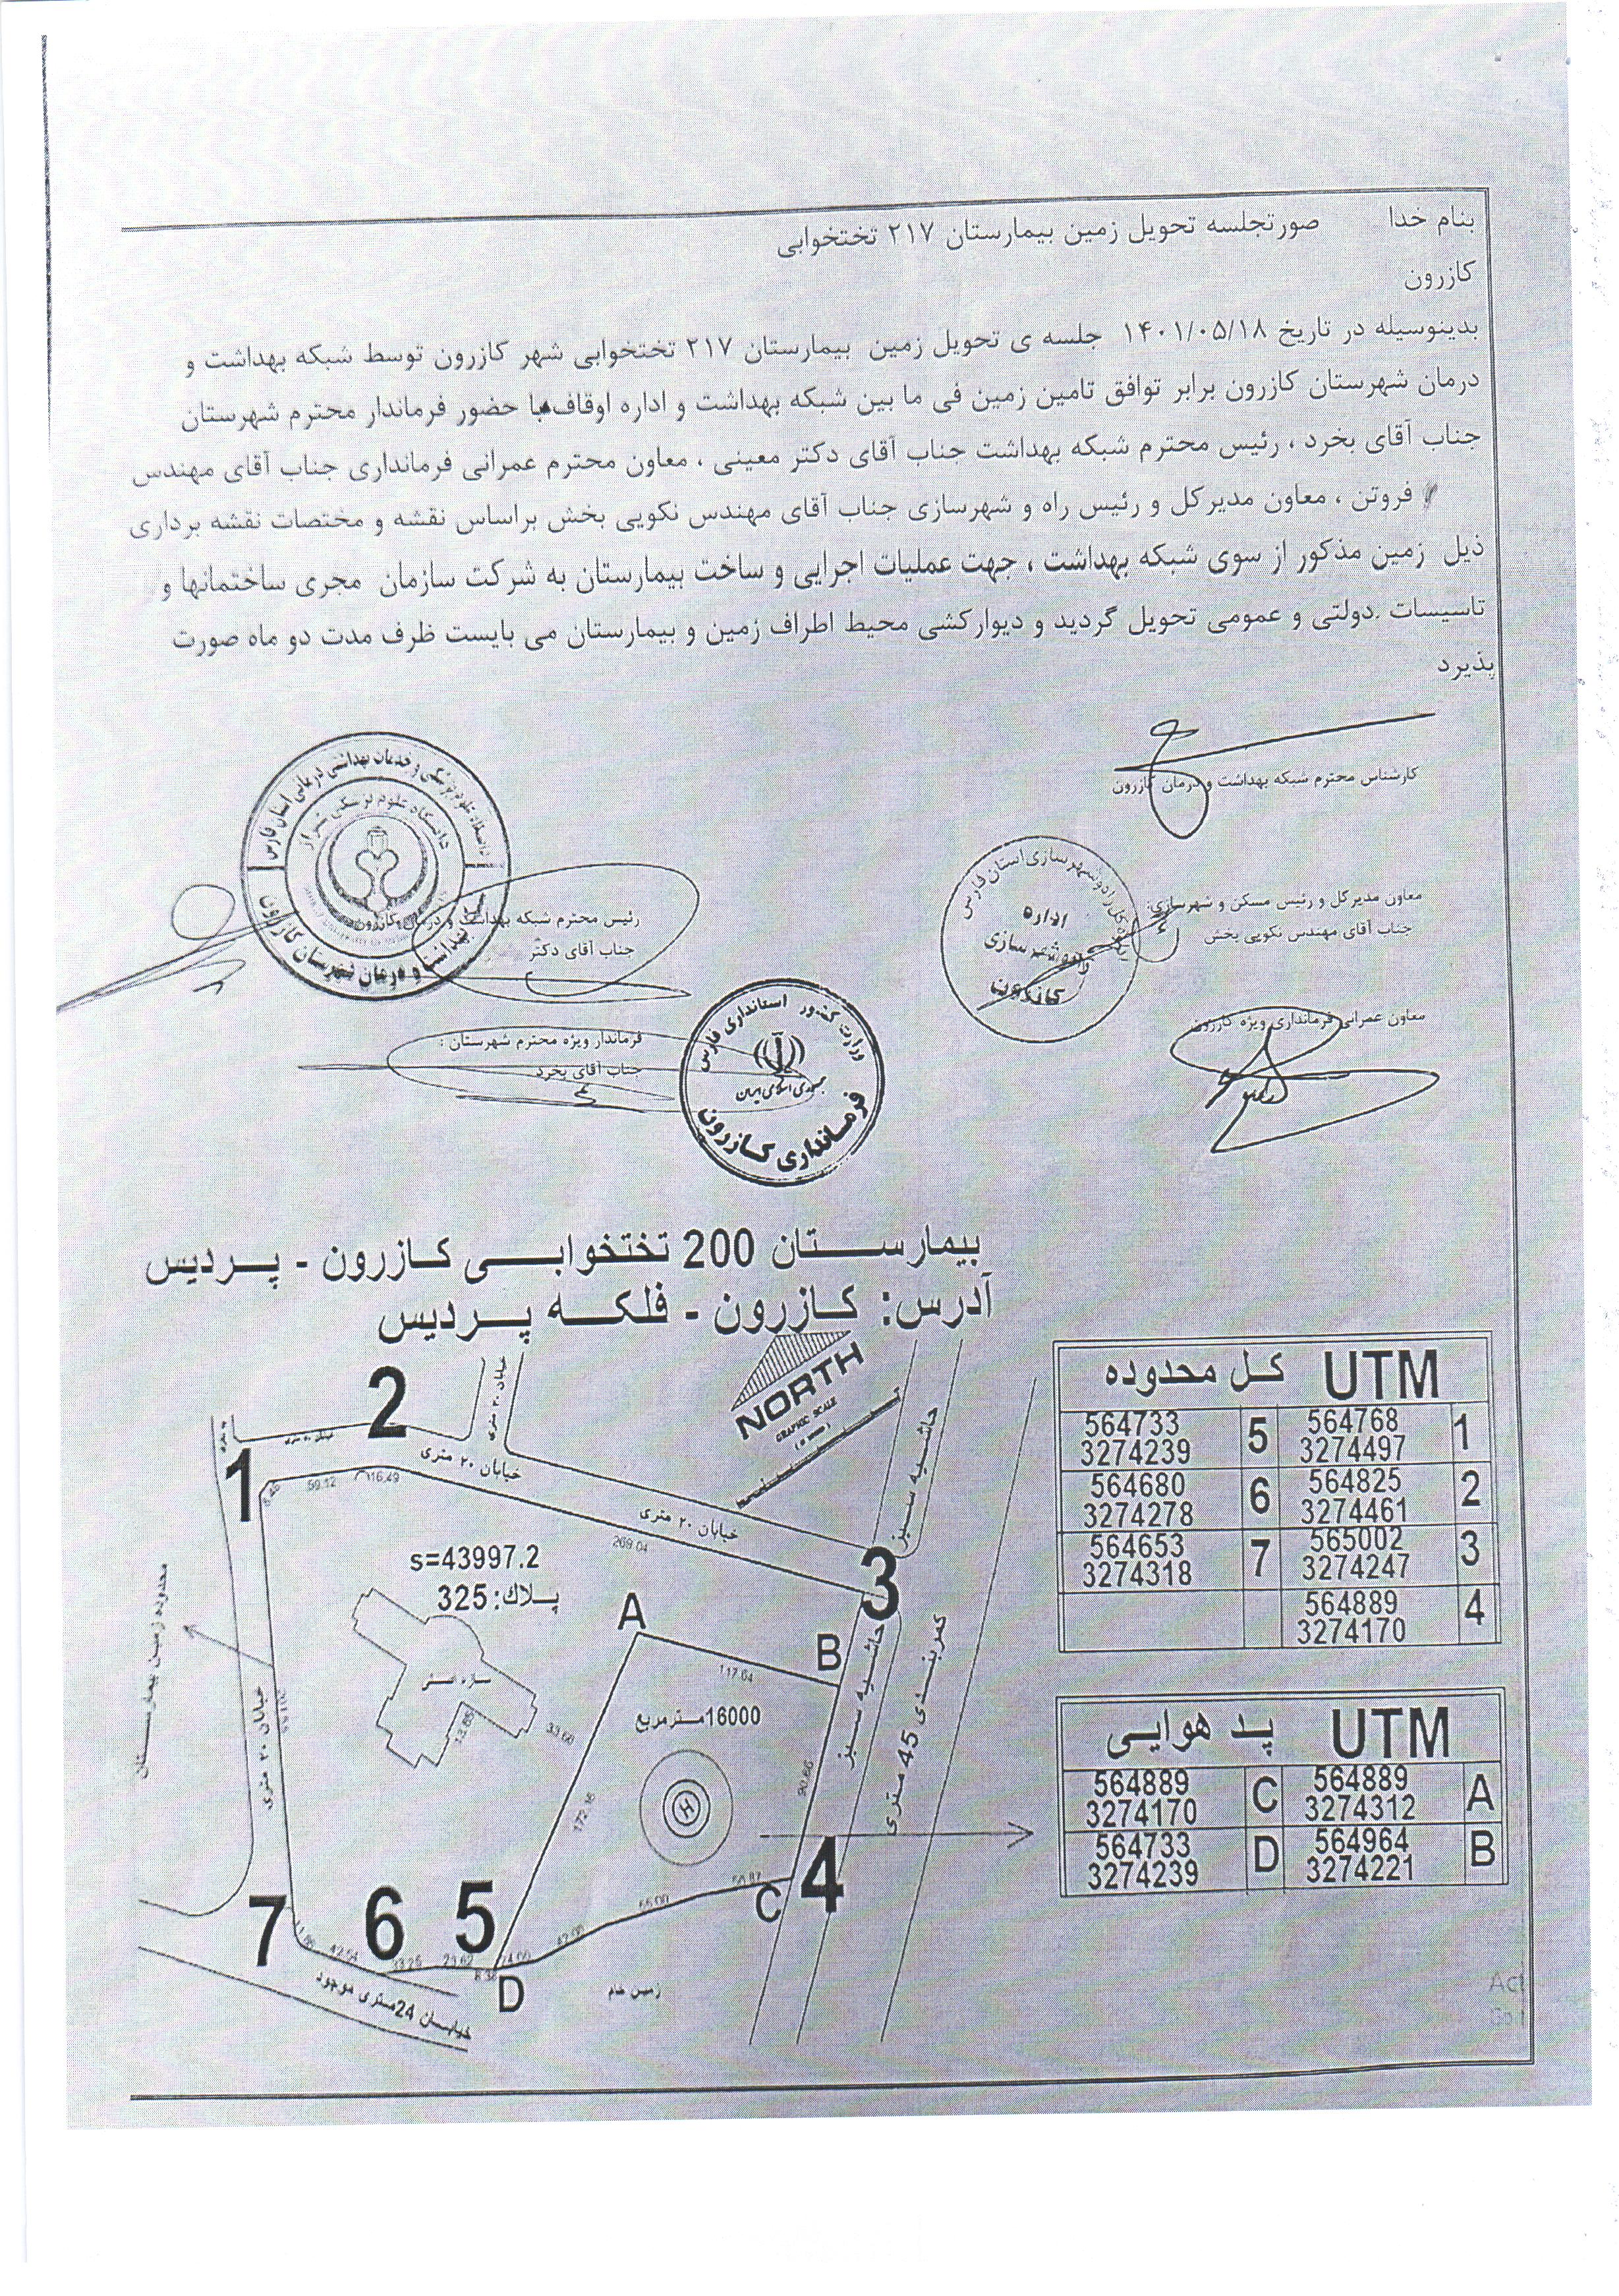 بنام خدا صورتجلسه تحویل زمین بیمارستان ۲۱۷ تختخوابی
کازرون
بدینوسیله در تاریخ ۱۴۰۱/۰۵/۱۸ جلسه ی تحویل زمین بیمارستان ۲۱۷ تختخوابی شهر کازرون توسط شبکه بهداشت و
درمان شهرستان کازرون برابر توافق تامین زمین فی ما بین شبکه بهداشت و اداره اوقاف با حضور فرماندار محترم شهرستان
جناب آقای بخرد ، رئیس محترم شبکه بهداشت جناب آقای دکتر معینی ، معاون محترم عمرانی فرمانداری جناب آقای مهندس
فروتن ، معاون مدیرکل و رئیس راه و شهرسازی جناب آقای مهندس نکویی بخش براساس نقشه و مختصات نقشه برداری
ذیل زمین مذکور از سوی شبکه بهداشت ، جهت عملیات اجرایی و ساخت بیمارستان به شرکت سازمان مجری ساختمانها و
تاسیسات .دولتی و عمومی تحویل گردید و دیوارکشی محیط اطراف زمین و بیمارستان می بایست ظرف مدت دو ماه صورت
پذیرد
کارشناس محترم شبکه بهداشت و درمان کازرون
دانشگاه علوم پزشکی و خدمات بهداشتی درمانی استان فارس
دانشگاه علوم پزشکی شیراز
شبکه بهداشت و درمان شهرستان کازرون
معاون مدیرکل و رئیس مسکن و شهرسازی:
جناب آقای مهندس نکویی بخش
اداره کل راه و شهرسازی استان فارس
اداره
راه و شهرسازی
کازرون
رئیس محترم شبکه بهداشت و درمان کازرون
جناب آقای دکتر
معاون عمرانی فرمانداری ویژه کازرون
فرماندار ویژه محترم شهرستان :
جناب آقای بخرد
وزارت کشور استانداری فارس
جمهوری اسلامی ایران
فرمانداری کازرون
بیمارستان 200 تختخوابی کازرون - پردیس
آدرس: کازرون - فلکه پردیس
NORTH
GRAPHIC SCALE
1
2
3
4
5
6
7
خیابان ۲۰ متری
خیابان ۲۰ متری
خیابان ۲۰ متری
خیابان ۲۰ متری
حاشیه سبز
حاشیه سبز
کمربندی 45 متری
59.12
16.49
269.04
s=43997.2
پلاک: 325
سازه اصلی
محدوده زمین بیمارستان
A
B
C
D
117.64
16000مترمربع
H
13.85
33.60
172.16
90.66
65.00
42.00
24.00
23.62
33.25
42.54
زمین خام
خیابان 24متری موجود
UTM کل محدوده
1 564768 3274497
5 564733 3274239
2 564825 3274461
6 564680 3274278
3 565002 3274247
7 564653 3274318
4 564889 3274170
UTM پد هوایی
A 564889 3274312
C 564889 3274170
B 564964 3274221
D 564733 3274239